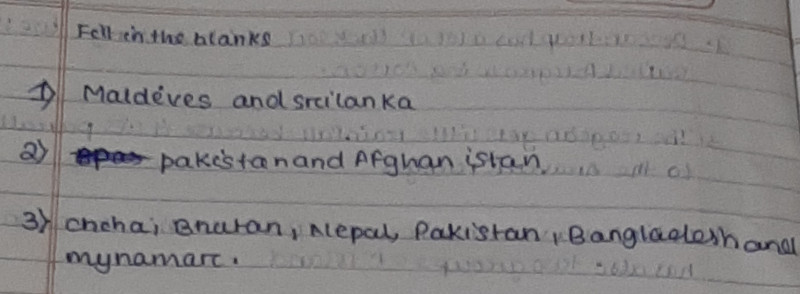 Fell in the blanks
1) Maldeves and srcilanka
2) pakestan and Afghanistan
3) Chcha, Bhutan, Nepal, Pakistan, Bangladesh and
mynamarc.